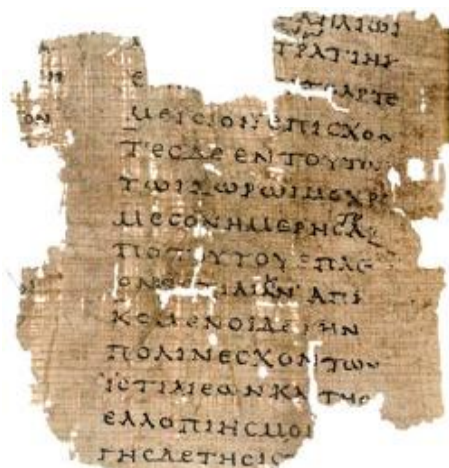 ΗΛΙΩΙ
ΤΡΑΤΙΗ
ΑΡΤΕ
ΜΕΙϹΙΟΝΕΠΙϹΧΟΝ
ΤΕϹΔΕΕΝΤΟΥΤΩ
ΤΩΙΧΩΡΩΙΜΕΧΡΙ
ΜΕϹΟΝΗΜΕΡΗϹΑ
ΠΟΤΟΥΤΟΥΕΠΛΕ
ΟΝ ΑΠΙ
ΚΟΜΕΝΟΙΔΕΤΗΝ
ΠΟΛΙΝΕϹΧΟΝΤΩΝ
ΙϹΤΙΑΙΕΩΝΚΑΙΤΗϹ
ΕΛΛΟΠΙΗϹΜΟΙ
ΓΗϹΔΕΤΗϹΙϹ